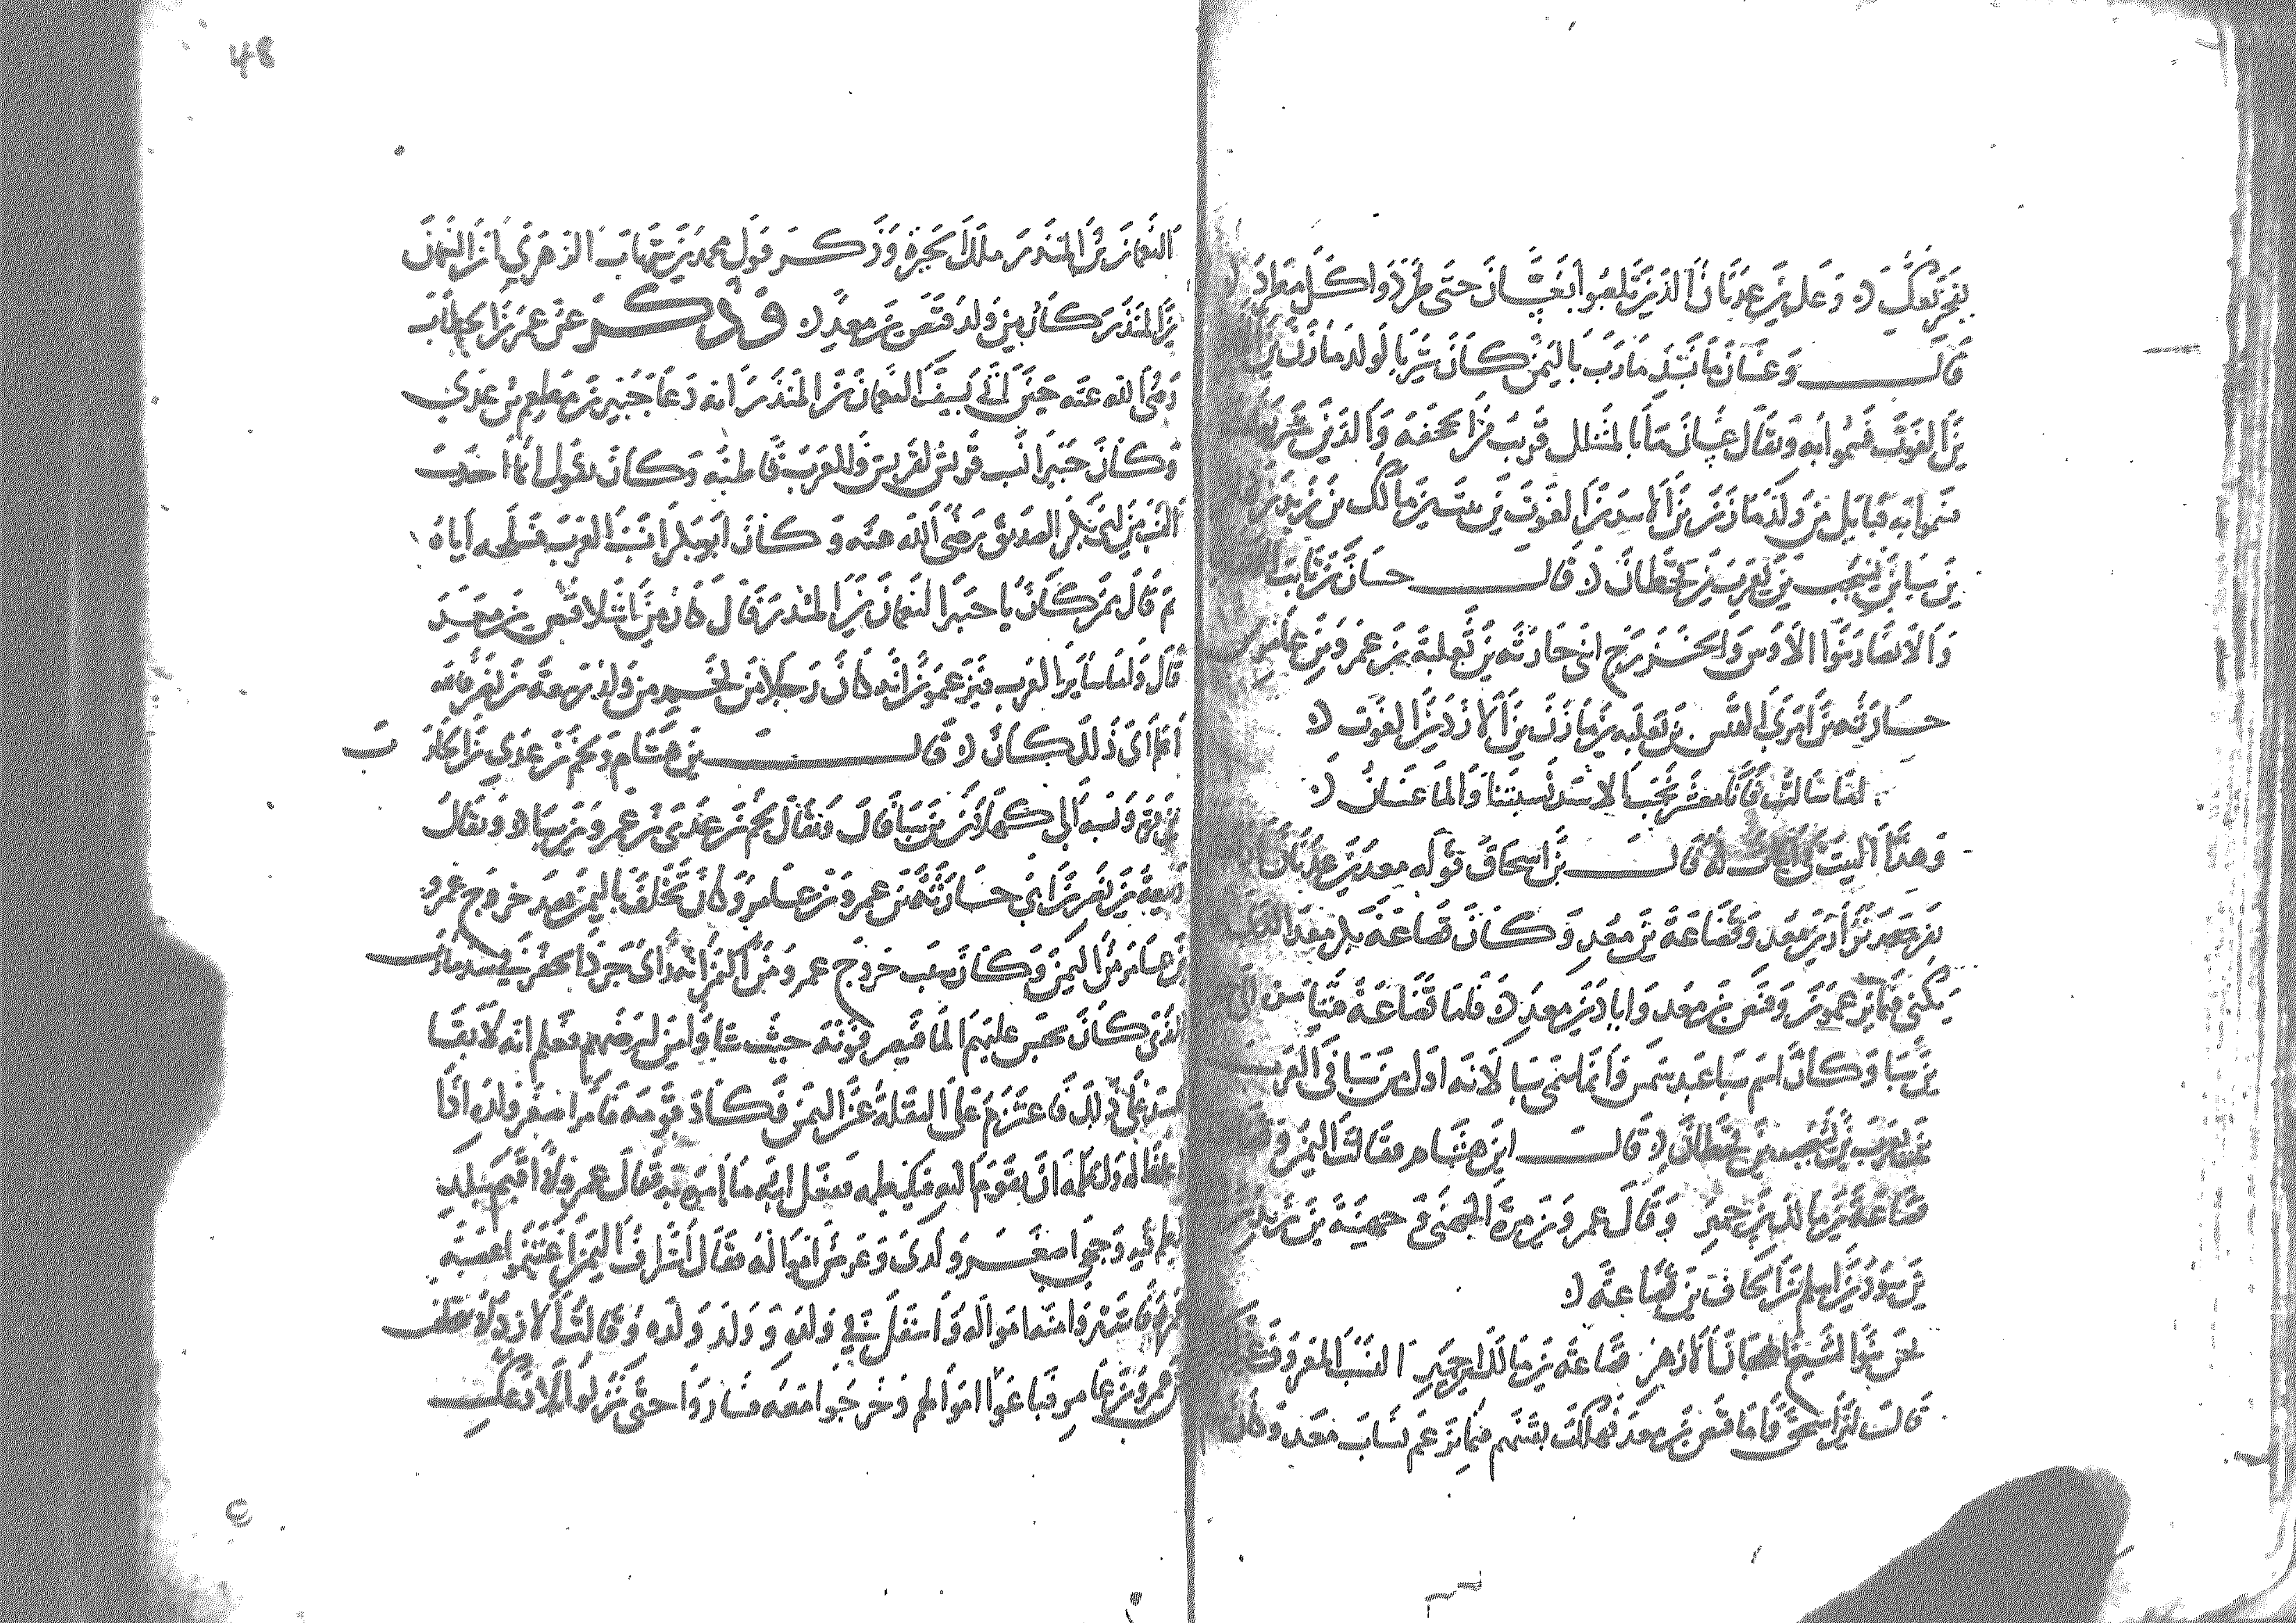 بفخر بعك وعك بن عدنان الذين تلعبوا بغسان حتى طردوا كل مطرد
قال وغسان ما بسد مارب باليمن كان شربا لولد مازن بن
بن الغوث فسموا به ويقال غسان ما بالمشلل قريب من الجحفة والذين شربوا
فسموا به قبايل من ولد مازن بن الاسد بن الغوث بن نبت بن مالك بن زيد بن
بن سبا بن يشجب بن يعرب بن قحطان قال حسان بن ثابت
والانصار بنوا الاوس والخزرج ابني حارثه بن ثعلبة بن عمرو بن عامر بن
حارثه بن امري القيس بن ثعلبه بن مازن بن الازد بن الغوث
اما سالت فانا معشر نجب الاسد نسبتنا والما غسان
وهذا البيت في ابيات له قال بن اسحاق فولد معد بن عدنان
نفر نزار بن معد وقضاعة بن معد وكان قضاعة بكر معد الذي
يكنى فيما يزعمون وقنص بن معد واياد بن معد فاما قضاعة فتيامنت الى
بن سبا وكان اسم سبا عبد شمس وانما سمي سبا لانه اول من سبا في العرب
بن يعرب بن يشجب بن قحطان قال ابن هشام فقالت اليمن وقضاعة
قضاعة بن مالك بن حمير وقال عمرو بن مرة الجهني وجهينة بن زيد بن
بن سود بن اسلم بن الحاف بن قضاعة
نحن بنوا الشيخ الهجان الازهر قضاعة بن مالك بن حمير النسب المعروف غير
قال بن اسحق فاما قنص بن معد فهلكت بقيتهم فيما يزعم نساب معد وكان
النعمان بن المنذر ملك الحيرة وذكر قول محمد بن شهاب الزهري ان النعمن
بن المنذر كان من ولد قنص بن معد وذكر عن عمر بن الخطاب
رضي الله عنه حين اتي بسيف النعمان بن المنذر انه دعا جبير بن مطعم بن عدي
وكان جبير انسب قريش لقريش وللعرب قاطبه وكان يقول انما اخذت
النسب من ابي بكر الصديق رضي الله عنه وكان ابو بكر انسب العرب فسلحه اياه
ثم قال ممن كان يا جبير النعمان بن المنذر قال كان من اشلا قنص بن معد
قال واما ساير العرب فيزعمون انه كان رجلا من لخم من ولد ربيعة بن نصر فالله
اعلم اي ذلك كان قال بن هشام ولخم بن عدي بن الحارث
بن مرة ونسبه الى كهلان بن سبا قال ويقال لخم بن عدي بن عمرو بن سبا ويقال
ربيعة بن نصر بن ابي حارثة بن عمرو بن عامر وكان تخلف باليمن بعد خروج عمرو
بن عامر من اليمن وكان سبب خروج عمرو من اليمن انه راى جرذا يحفر في سد مارب
الذي كان يحبس عليهم الما فيصرفونه حيث شاوا من ارضهم فعلم انه لا بقا
للسد على ذلك فاعتزم على النقلة عن اليمن فكاد قومه فامر اصغر ولده اذا
اغلظ له ولطمه ان يقوم اليه فيلطمه ففعل ابنه ما امره به فقال عمرو لا اقيم ببلد
لطم فيه وجهي اصغر ولدي وعرض امواله فقال اشراف اليمن اغتنموا غضبة
عمرو فاشتروا منه امواله وانتقل في ولده وولد ولده وقالت الازد لا نتخلف
عن عمرو بن عامر فباعوا اموالهم وخرجوا معه فساروا حتى نزلوا بلاد عك
48